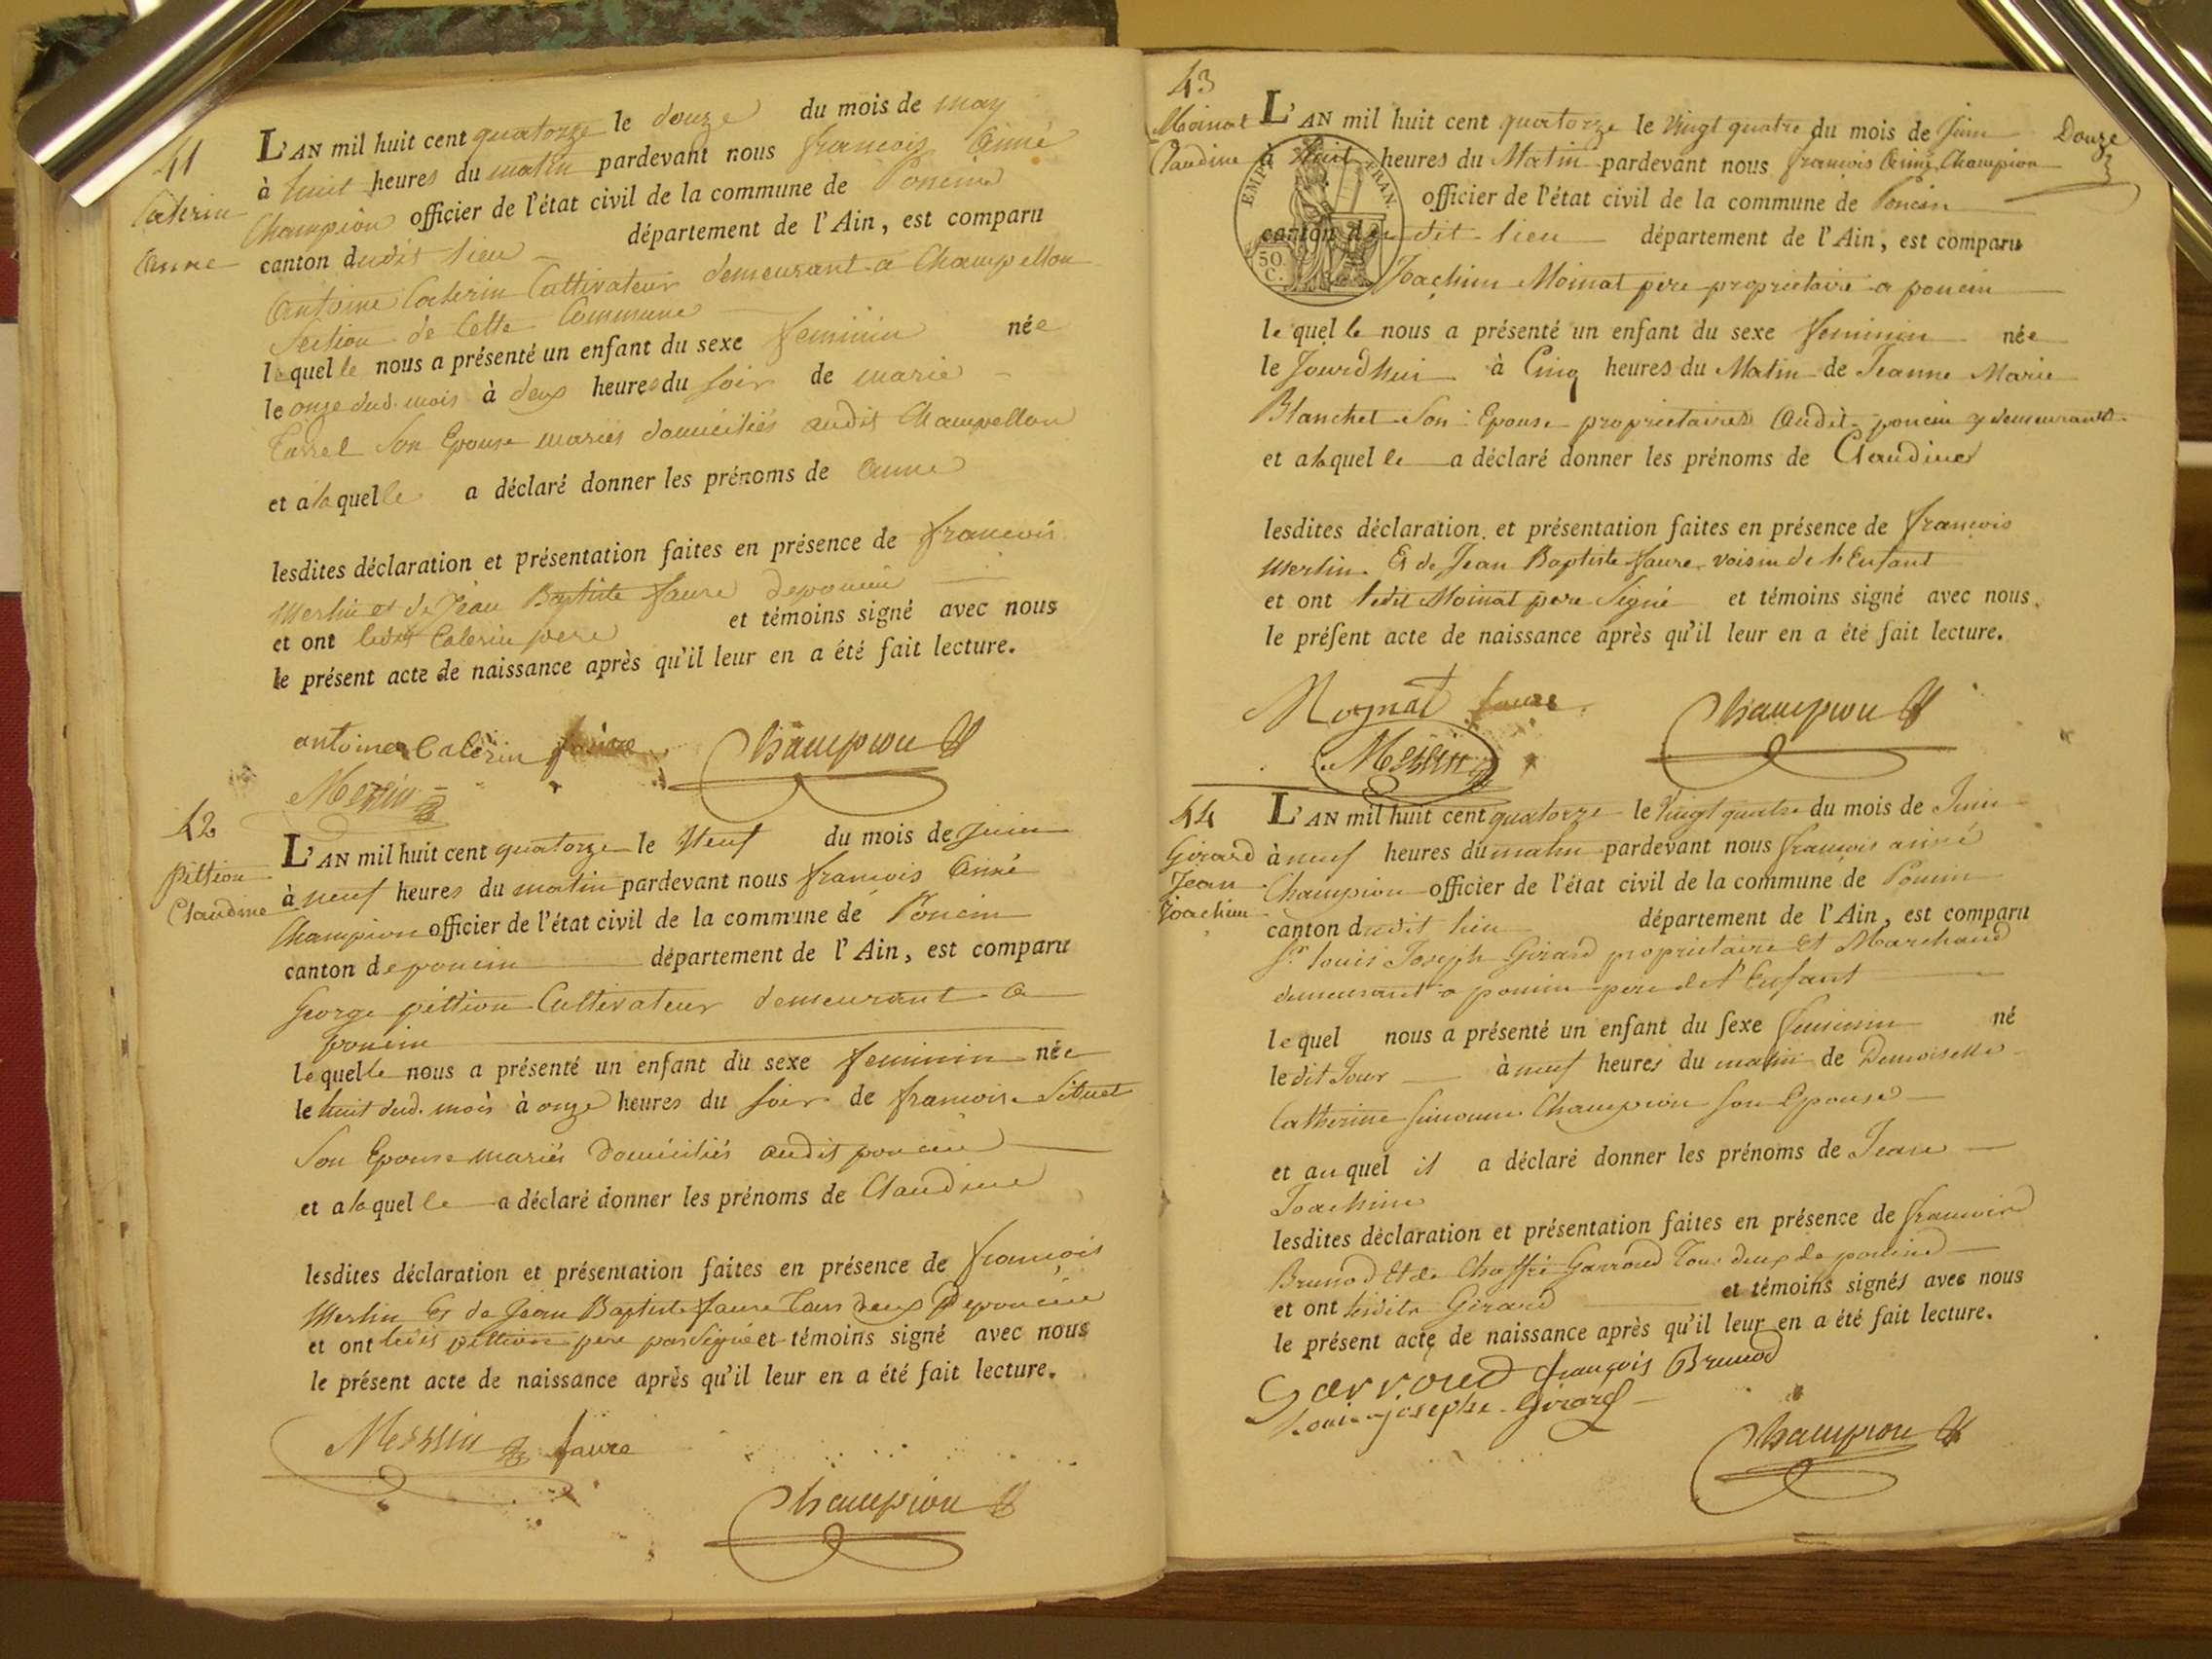 41
Caterin
Anne
L'AN mil huit cent quatorze le douze du mois de may
à huit heures du matin pardevant nous françois Aimé
Champion officier de l'état civil de la commune de Poncin
canton dudit lieu département de l'Ain, est comparu
Antoine Caterin Cultivateur demeurant a Champellon
Section de Cette Commune
lequelle nous a présenté un enfant du sexe feminin née
le onze dud. mois à deux heures du soir de marie
son Epouse mariés domiciliés audit Champellon
et a laquelle a déclaré donner les prénoms de Anne
lesdites déclaration et présentation faites en présence de francois
Merlin et de Jean Baptiste faure deponcin
et ont ledit Caterin pere et témoins signé avec nous
le présent acte de naissance après qu'il leur en a été fait lecture.
antoine Caterin faure Champion
Merlin
42
pittion
Claudine
L'AN mil huit cent quatorze le Neuf du mois de Juin
à neuf heures du matin pardevant nous francois Aimé
Champion officier de l'état civil de la commune de Poncin
canton deponcin département de l'Ain, est comparu
George pittion Cultivateur demeurant a
poncin
lequelle nous a présenté un enfant du sexe feminin née
le huit dud. mois à onze heures du soir de francoise
Son Epouse mariés domiciliés audit poncin
et a laquelle a déclaré donner les prénoms de Claudine
lesdites déclaration et présentation faites en présence de françois
Merlin Et de Jean Baptiste faure tous deux Deponcin
et ont ledit pittion pere pas signé et témoins signé avec nous
le présent acte de naissance après qu'il leur en a été fait lecture.
Merlin faure
Champion
43
Moinat
Claudine
Douze
L'AN mil huit cent quatorze le Vingt quatre du mois de Juin
à huit heures du Matin pardevant nous françois Aimé Champion
officier de l'état civil de la commune de Poncin
canton du dit lieu département de l'Ain, est comparu
EMP FRAN
50
C.
Joachim Moinat pere proprietaire a poncin
le quel le nous a présenté un enfant du sexe feminin née
le Jourdhui à Cinq heures du Matin de Jeanne Marie
Blanchet Son Epouse proprietaires Audit poncin y demeurants
et a laquel le a déclaré donner les prénoms de Claudine
lesdites déclaration et présentation faites en présence de françois
Merlin Et de Jean Baptiste faure voisin de l'Enfant
et ont ledit Moinat pere Signé et témoins signé avec nous
le présent acte de naissance après qu'il leur en a été fait lecture.
Moynat faure Champion
Merlin
44
Girard
Jean
Joachim
L'AN mil huit cent quatorze le Vingt quatre du mois de Juin
à neuf heures du matin pardevant nous francois aimé
Champion officier de l'état civil de la commune de Poncin
canton dudit lieu département de l'Ain, est comparu
Sr. Louis Joseph Girard proprietaire Et Marchand
demeurant a poncin pere de l'Enfant
lequel nous a présenté un enfant du sexe feminin né
ledit Jour à neuf heures du matin de Demoiselle
Catherine Simonne Champion son Epouse
et auquel il a déclaré donner les prénoms de Jean
Joachim
lesdites déclaration et présentation faites en présence de francois
Brunod Et de Garroud Tous deux de poncin
et ont Girard et témoins signés avec nous
le présent acte de naissance après qu'il leur en a été fait lecture.
Garroud françois Brunod
Louis joseph Girard
Champion